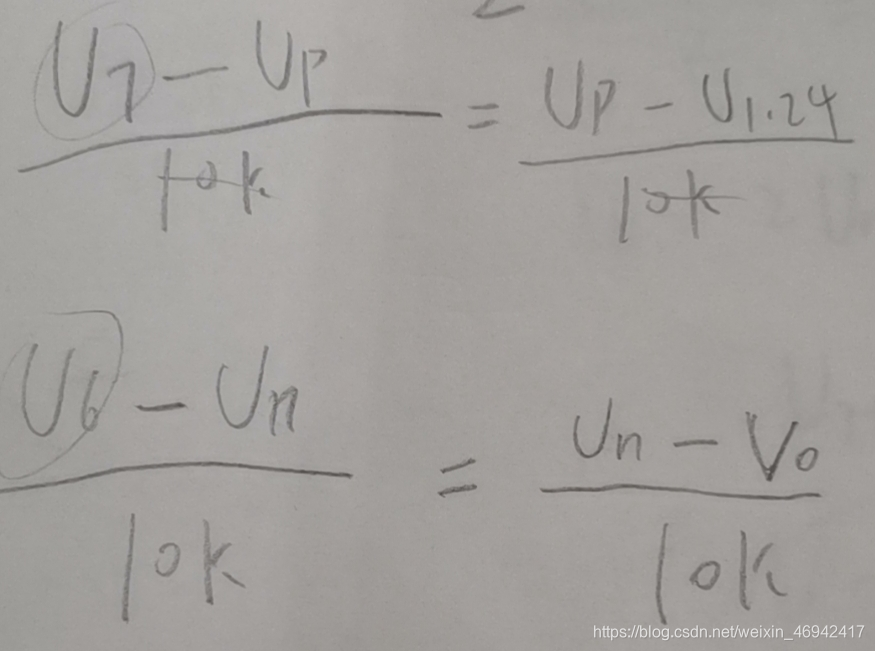 U7 - Up = Up - U1.24
10k 10k
U6 - Un = Un - Vo
10k 10k
https://blog.csdn.net/weixin_46942417